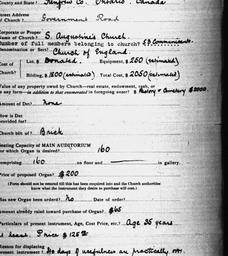 County and State Renfrew Co. Ontario. Canada
Street Address
of Church Government Road
Corporate or Proper
Name of Church? S. Augustine's Church.
Number of full members belonging to church? 53 Communicants.
Church of England
Cost of Church: Lot, $ Donated. Equipment, $ 250 (estimated)
Bldling, $ 1800 (estimated) Total Cost, $ 2050 (estimated)
Value of any property owned by Church—real estate, endowment, cash, or
in any form—in addition to that enumerated in foregoing answer? $ Rectory + Cemetery $2000.
Amount of Debt? None
How is Debt
provided for?
Church built of? Brick
Seating Capacity of MAIN AUDITORIUM
for which Organ is desired? 160
comprising 160 on floor and in gallery.
Price of proposed Organ? $200
(Form should not be returned till this has been inquired into and the Church authorities
know what the instrument they desire to purchase will cost.)
Has new Organ been ordered? No Date of order?
Amount already raised toward purchase of Organ? $65
Particulars of present instrument, Age, Cost Price, etc.? Age 35 years
at least. Price $125
Reasons for displacing
present instrument? Its days of usefulness are practically